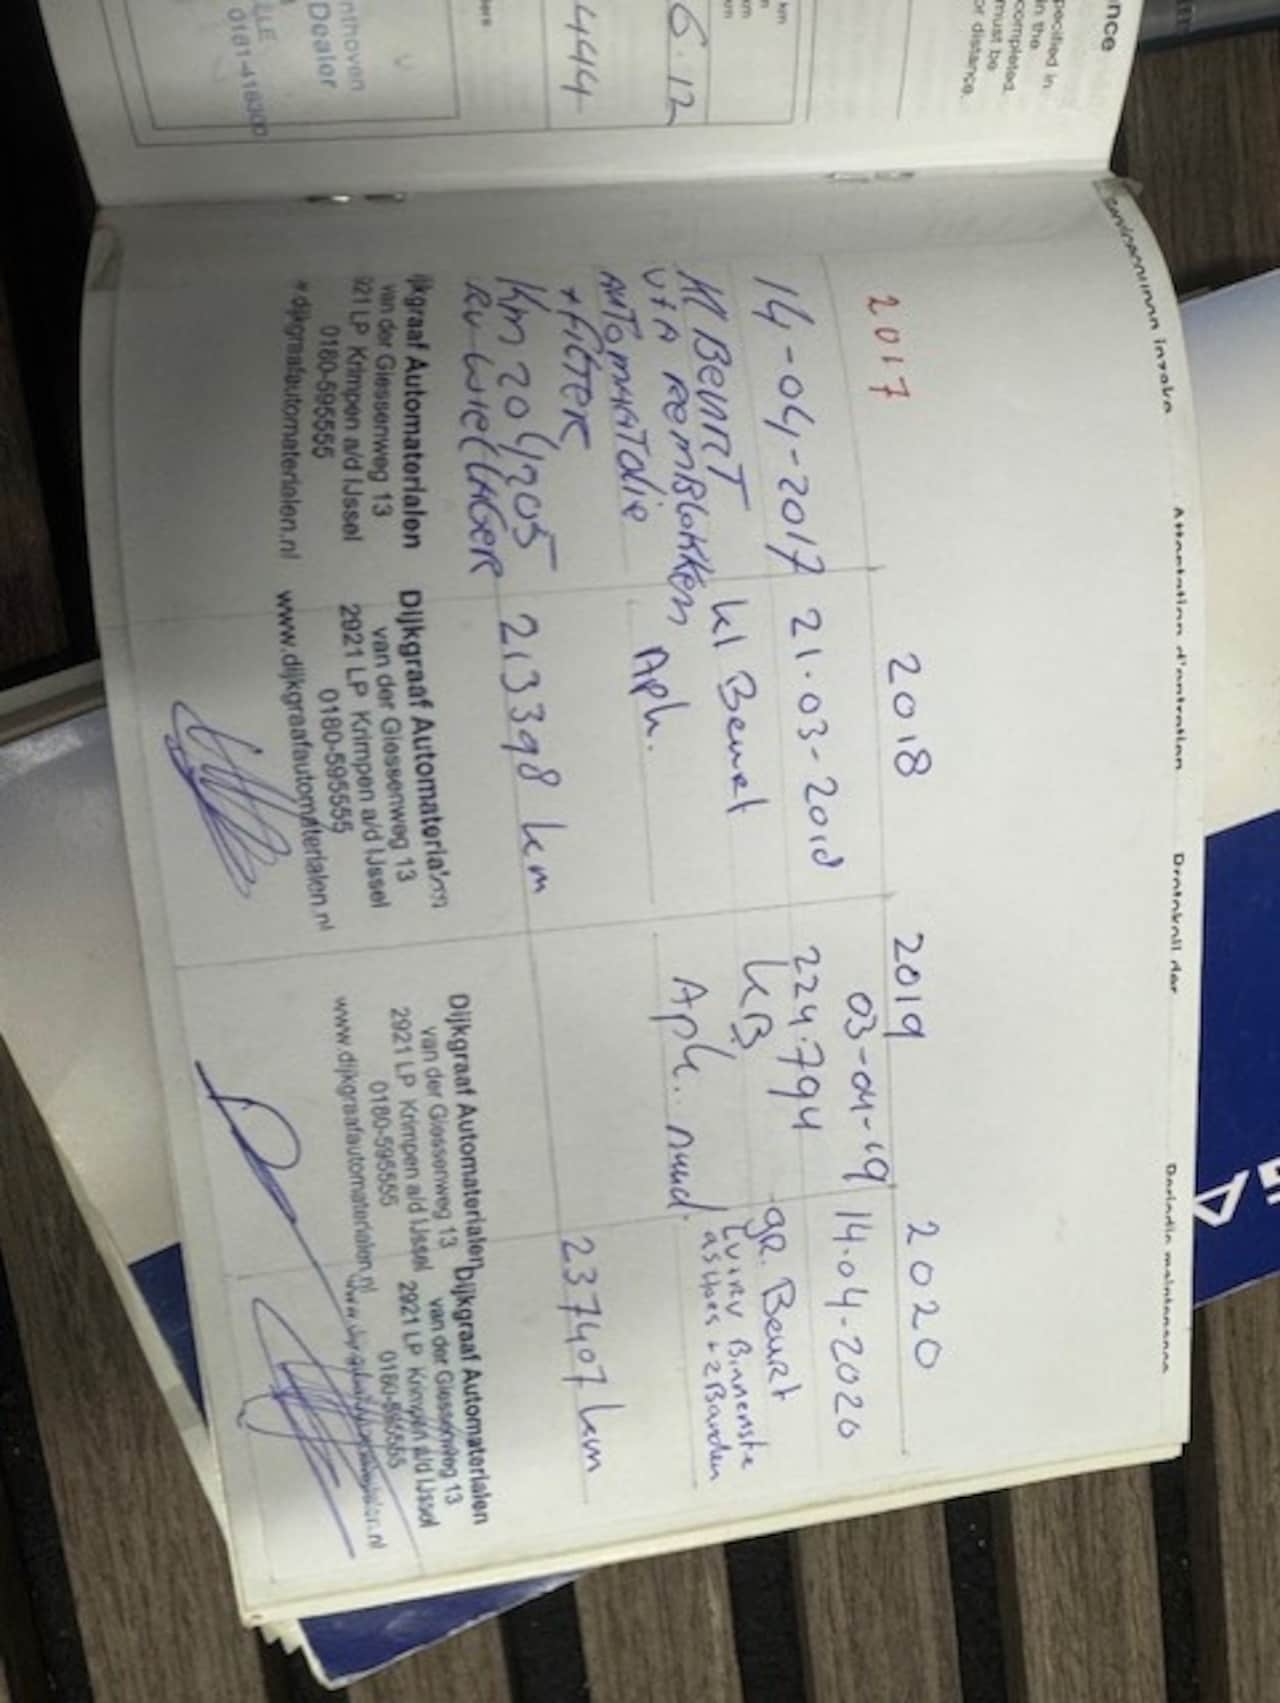 nce
pecified in
in the
completed.
must be
or distance.
km
km
km
6.12
444
nthoven
Dealer
LLE
0181-418300
Attestation d'entretien
Protokoll der
Periodic maintenance
2017
14-04-2017
Kl Beurt
V+A Remblokken
Automaatolie
+ filter
Km 204205
RV Wiellager
ijkgraaf Automaterialen
van der Giessenweg 13
921 LP Krimpen a/d IJssel
0180-595555
w.dijkgraafautomaterialen.nl
2018
21.03-2018
kl Beurt
Aph.
213398 km
Dijkgraaf Automaterialen
van der Giessenweg 13
2921 LP Krimpen a/d IJssel
0180-595555
www.dijkgraafautomaterialen.nl
2019
03-04-19
224.794
KB
Aph.
Dijkgraaf Automaterialen
van der Giessenweg 13
2921 LP Krimpen a/d IJssel
0180-595555
www.dijkgraafautomaterialen.nl
2020
14.04-2020
gr. Beurt
LV+RV Binnenste
ashoes + 2 Banden
237407 km
Dijkgraaf Automaterialen
van der Giessenweg 13
2921 LP Krimpen a/d IJssel
0180-595555